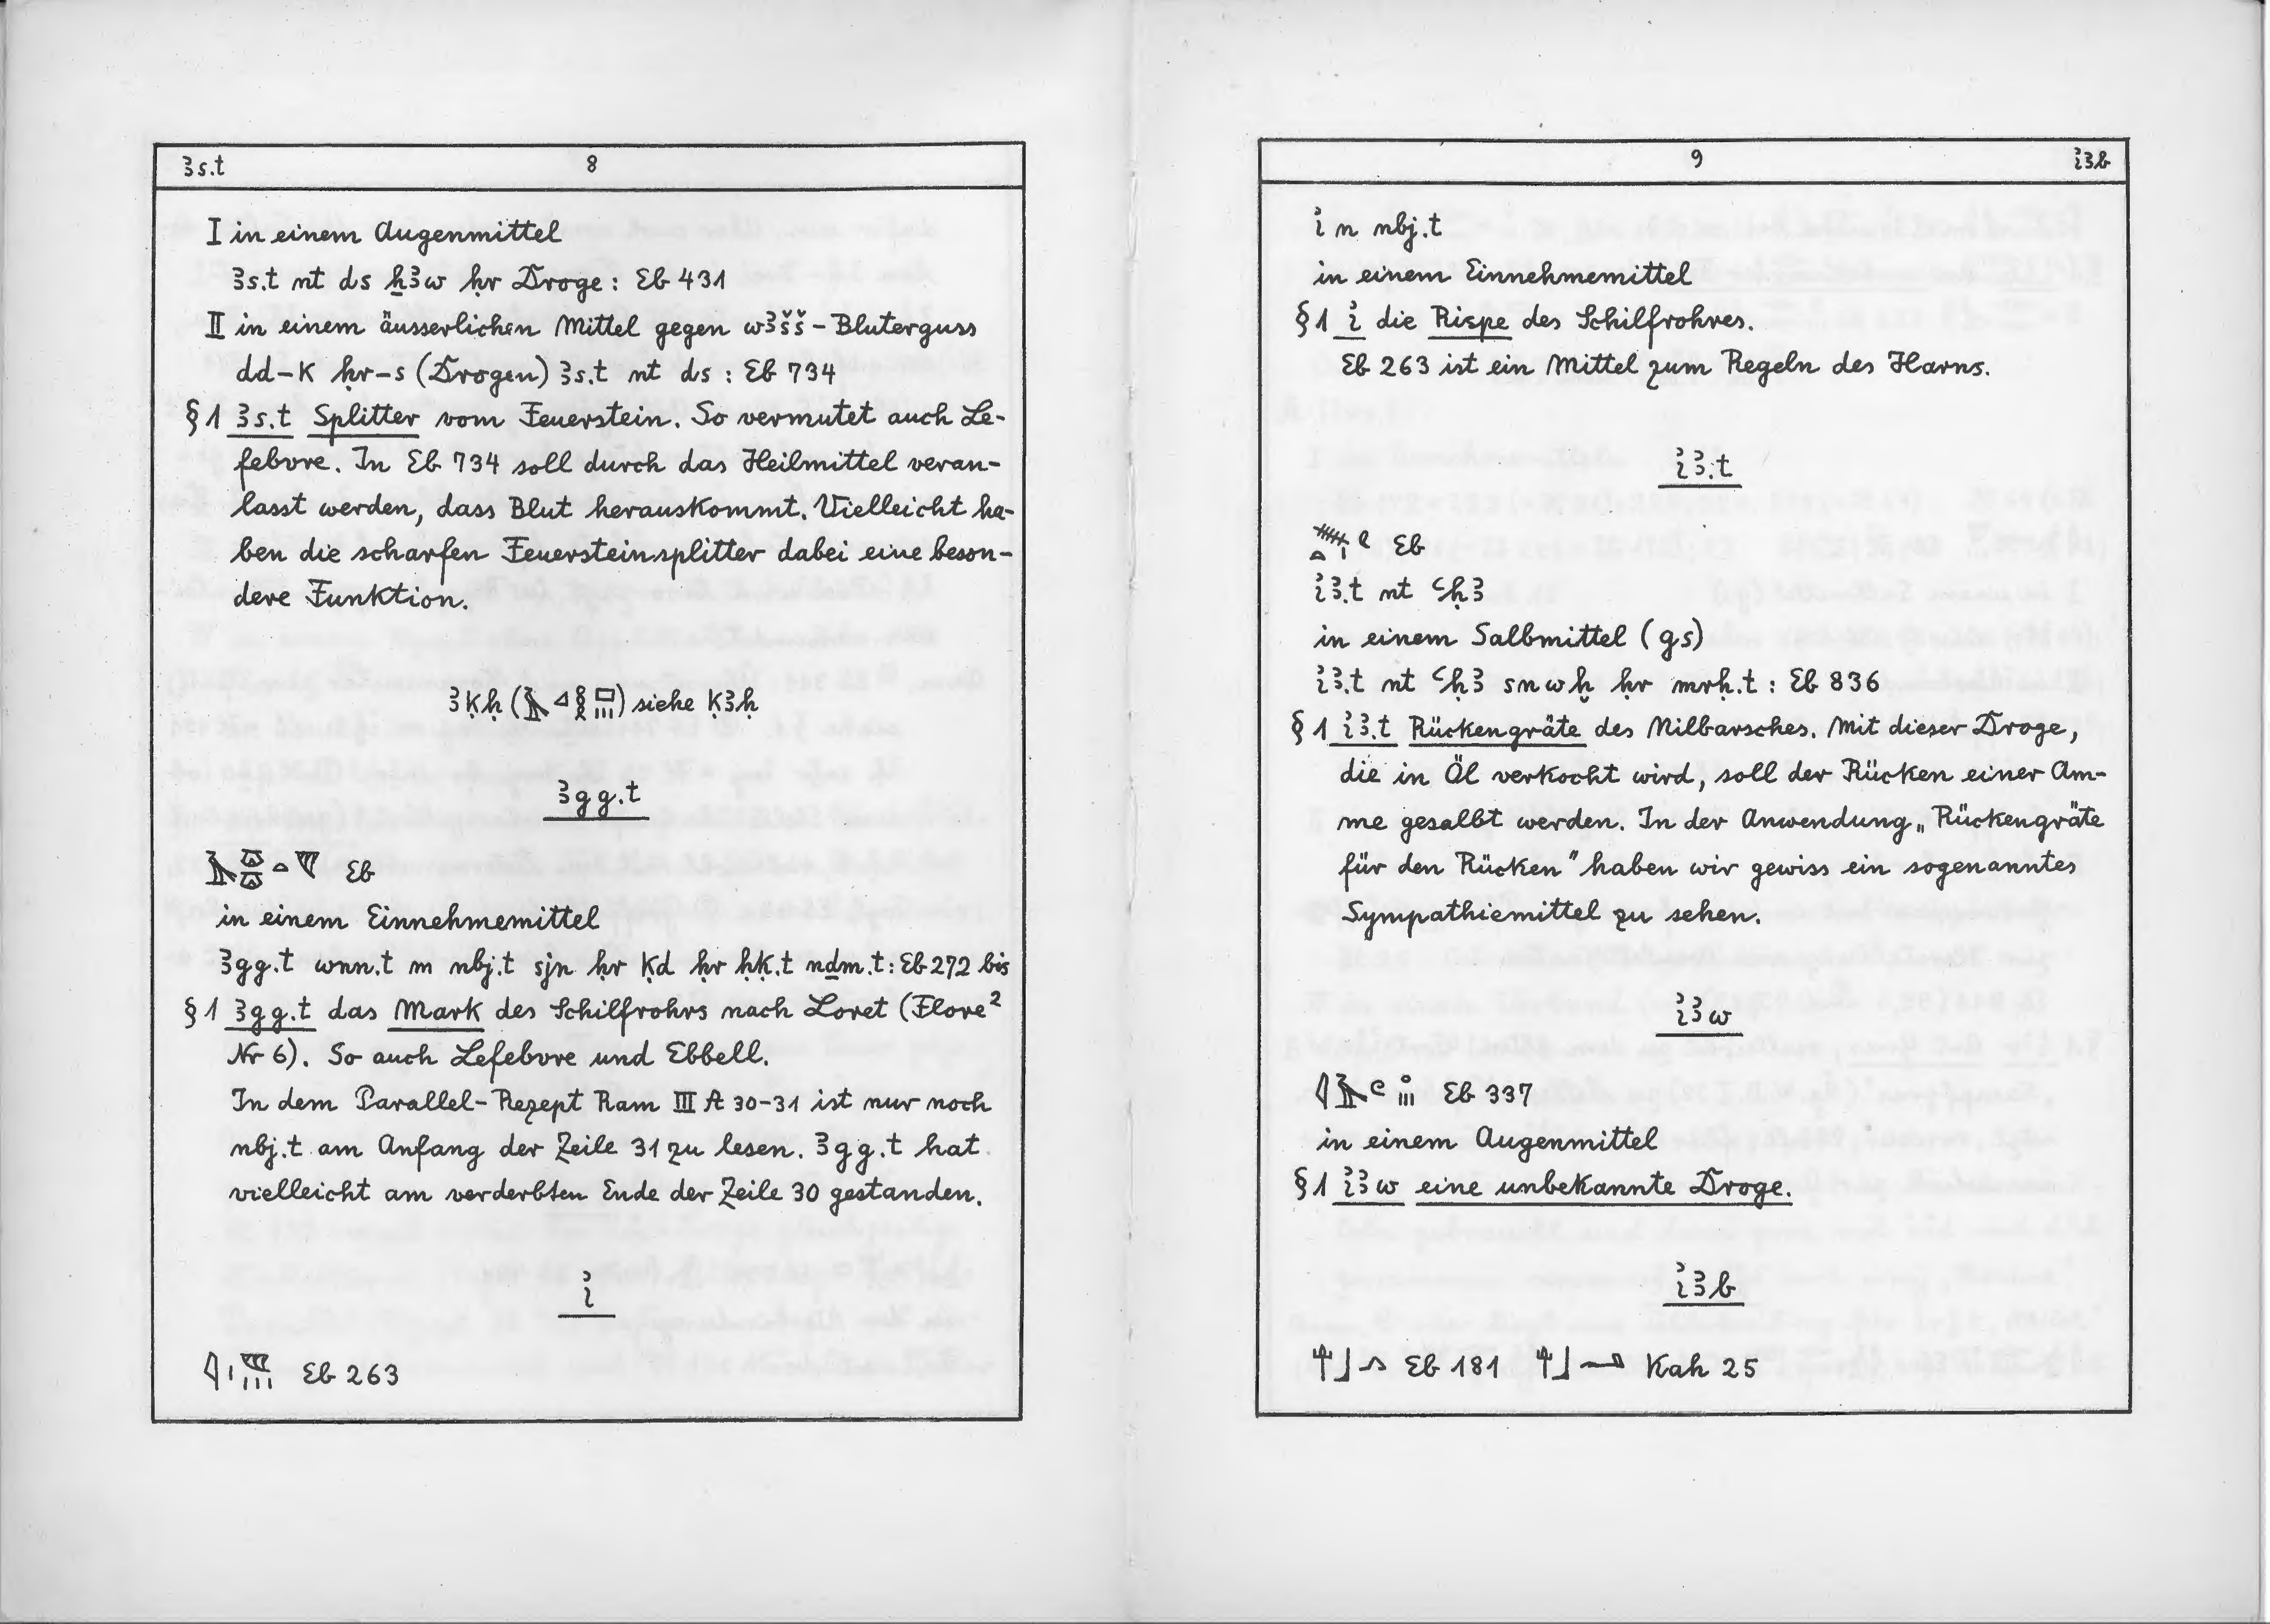 ꜣs.t 8
I in einem Augenmittel
ꜣs.t nt ds ẖꜣw ḥr Droge: Eb 431
II in einem äusserlichen Mittel gegen wꜣšš-Bluterguss
dd-k ḥr-s (Drogen) ꜣs.t nt ds : Eb 734
§ 1 ꜣs.t Splitter vom Feuerstein. So vermutet auch Le-
febvre. In Eb 734 soll durch das Heilmittel veran-
lasst werden, dass Blut herauskommt. Vielleicht ha-
ben die scharfen Feuersteinsplitter dabei eine beson-
dere Funktion.
ꜣḳḥ (𓄿𓈎𓎛𓈙𓏥) siehe ḳꜣḥ
ꜣgg.t
Eb
in einem Einnehmemittel
ꜣgg.t wnn.t m nbj.t sjn ḥr ḳd ḥr ḥḳ.t nḏm.t: Eb 272 bis
§ 1 ꜣgg.t das Mark des Schilfrohrs nach Loret (Flore²
Nr 6). So auch Lefebvre und Ebbell.
In dem Parallel-Rezept Ram III A 30-31 ist nur noch
nbj.t am Anfang der Zeile 31 zu lesen. ꜣgg.t hat
vielleicht am verderbten Ende der Zeile 30 gestanden.
ı͗
Eb 263
9 ı͗ꜣb
ı͗ n nbj.t
in einem Einnehmemittel
§ 1 ı͗ die Rispe des Schilfrohres.
Eb 263 ist ein Mittel zum Regeln des Harns.
ı͗ꜣ.t
Eb
ı͗ꜣ.t nt ꜥḥꜣ
in einem Salbmittel (gs)
ı͗ꜣ.t nt ꜥḥꜣ snwḫ ḥr mrḥ.t : Eb 836
§ 1 ı͗ꜣ.t Rückengräte des Nilbarsches. Mit dieser Droge,
die in Öl verkocht wird, soll der Rücken einer Am-
me gesalbt werden. In der Anwendung „Rückengräte
für den Rücken" haben wir gewiss ein sogenanntes
Sympathiemittel zu sehen.
ı͗ꜣw
Eb 337
in einem Augenmittel
§ 1 ı͗ꜣw eine unbekannte Droge.
ı͗ꜣb
Eb 181 Kah 25